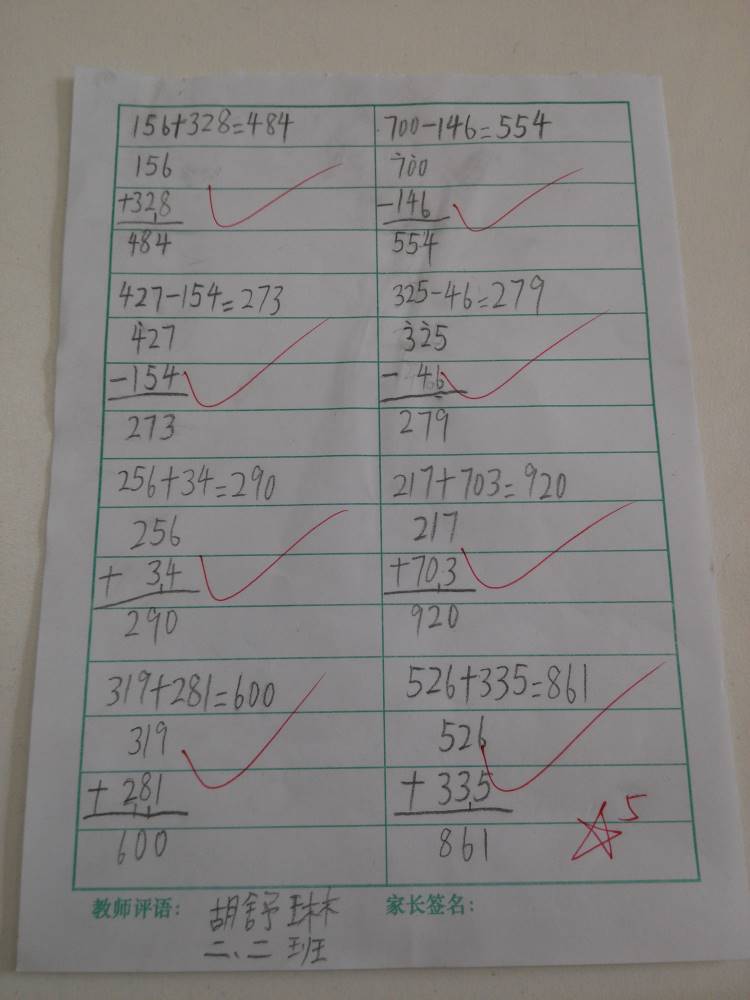 156+328=484
156
+328
484
700-146=554
700
-146
554
427-154=273
427
-154
273
325-46=279
325
- 46
279
256+34=290
256
+ 34
290
217+703=920
217
+703
920
319+281=600
319
+281
600
526+335=861
526
+335
861
5
教师评语: 胡舒琳
二、二班
家长签名: